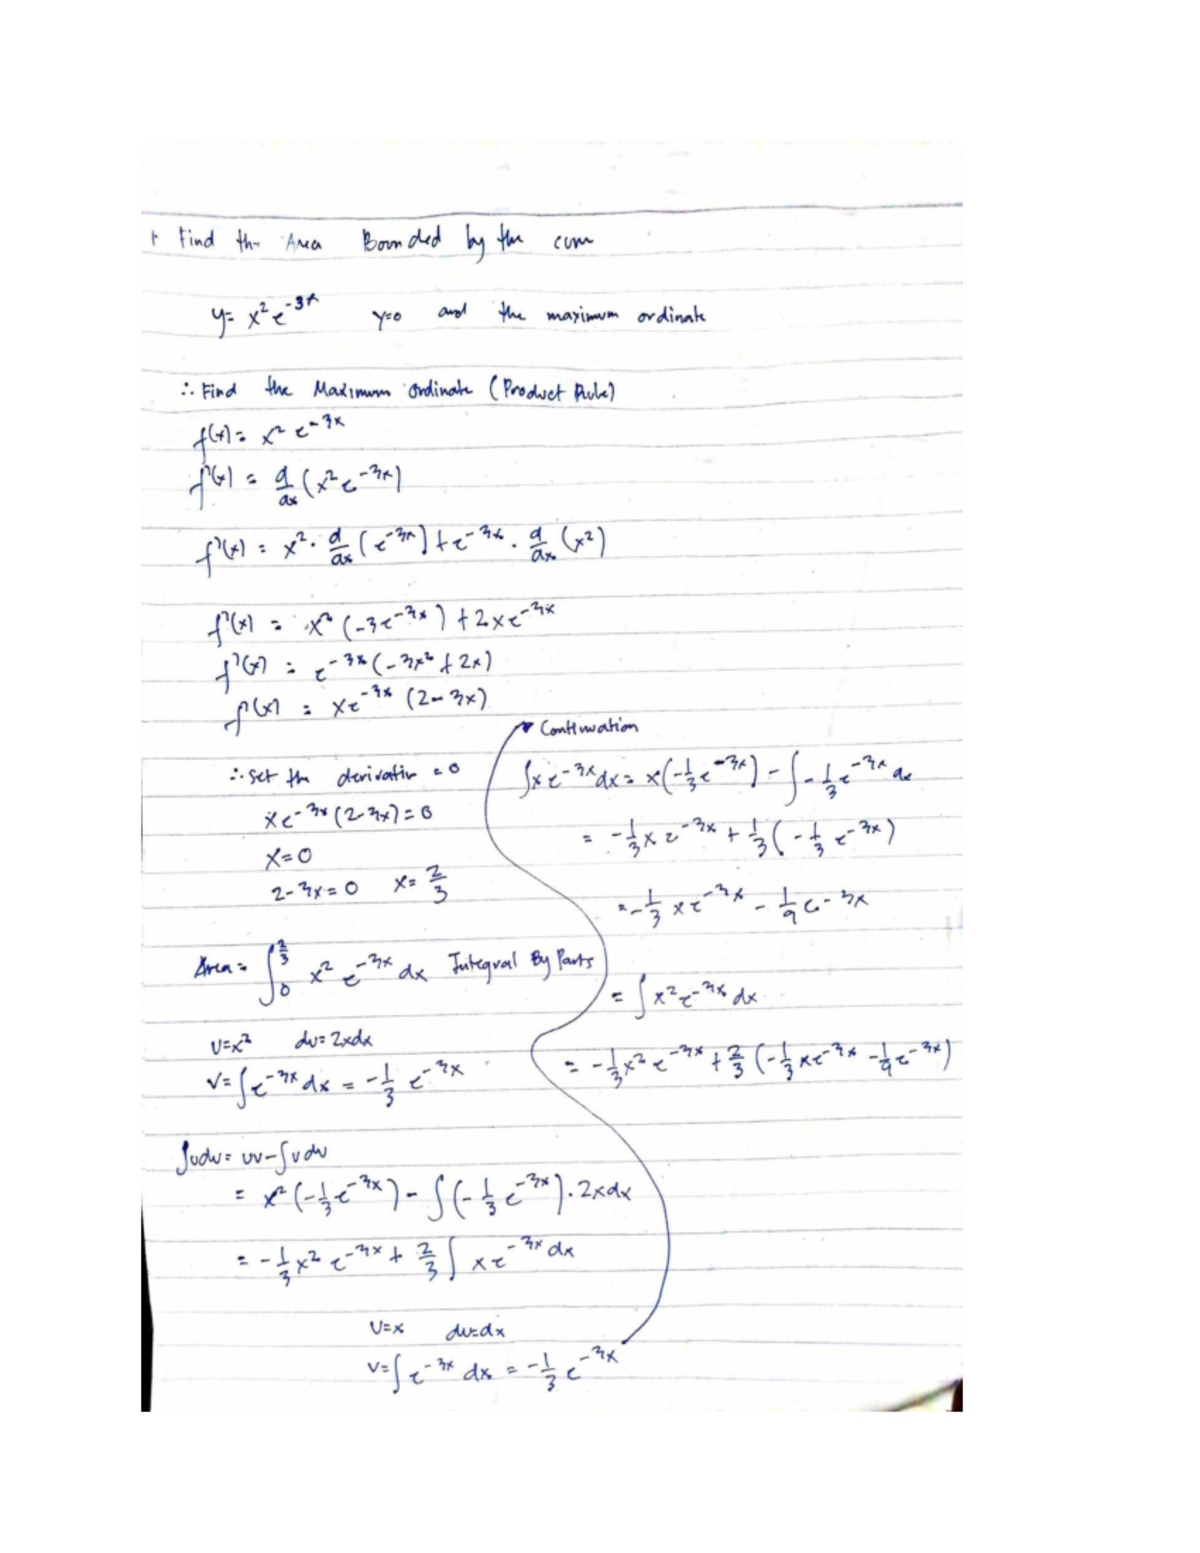 Find the Area Bounded by the curve
y= x²e^-3x y=0 and the maximum ordinate
∴ Find the Maximum Ordinate (Product Rule)
f(x) = x² e^-3x
f'(x) = d/dx (x²e^-3x)
f'(x) = x² · d/dx (e^-3x) + e^-3x · d/dx (x²)
f'(x) = x² (-3e^-3x) + 2xe^-3x
f'(x) = e^-3x (-3x² + 2x)
f'(x) = xe^-3x (2-3x)
∴ set the derivative = 0
xe^-3x (2-3x) = 0
x=0
2-3x=0 x= 2/3
Area = ∫_0^2/3 x² e^-3x dx Integral By Parts
u=x² du= 2xdx
v= ∫e^-3x dx = -1/3 e^-3x
∫udv= uv-∫vdu
= x² (-1/3 e^-3x) - ∫(-1/3 e^-3x) · 2xdx
= -1/3 x² e^-3x + 2/3 ∫ xe^-3x dx
u=x du=dx
v=∫e^-3x dx = -1/3 e^-3x
Continuation
∫xe^-3x dx = x(-1/3 e^-3x) - ∫-1/3 e^-3x dx
= -1/3 xe^-3x + 1/3 (-1/3 e^-3x)
= -1/3 xe^-3x - 1/9 e^-3x
= ∫x²e^-3x dx
= -1/3 x² e^-3x + 2/3 (-1/3 xe^-3x - 1/9 e^-3x)